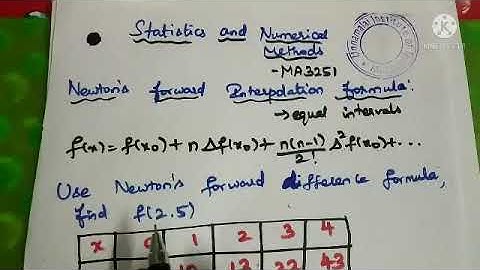 Statistics and Numerical
Methods
- MA3251
Newton's forward Interpolation formula:
→ equal intervals
f(x) = f(x₀) + n Δf(x₀) + n(n-1)/2! Δ²f(x₀) + ...
Use Newton's forward difference formula,
find f(2.5)
x 1 2 3 4